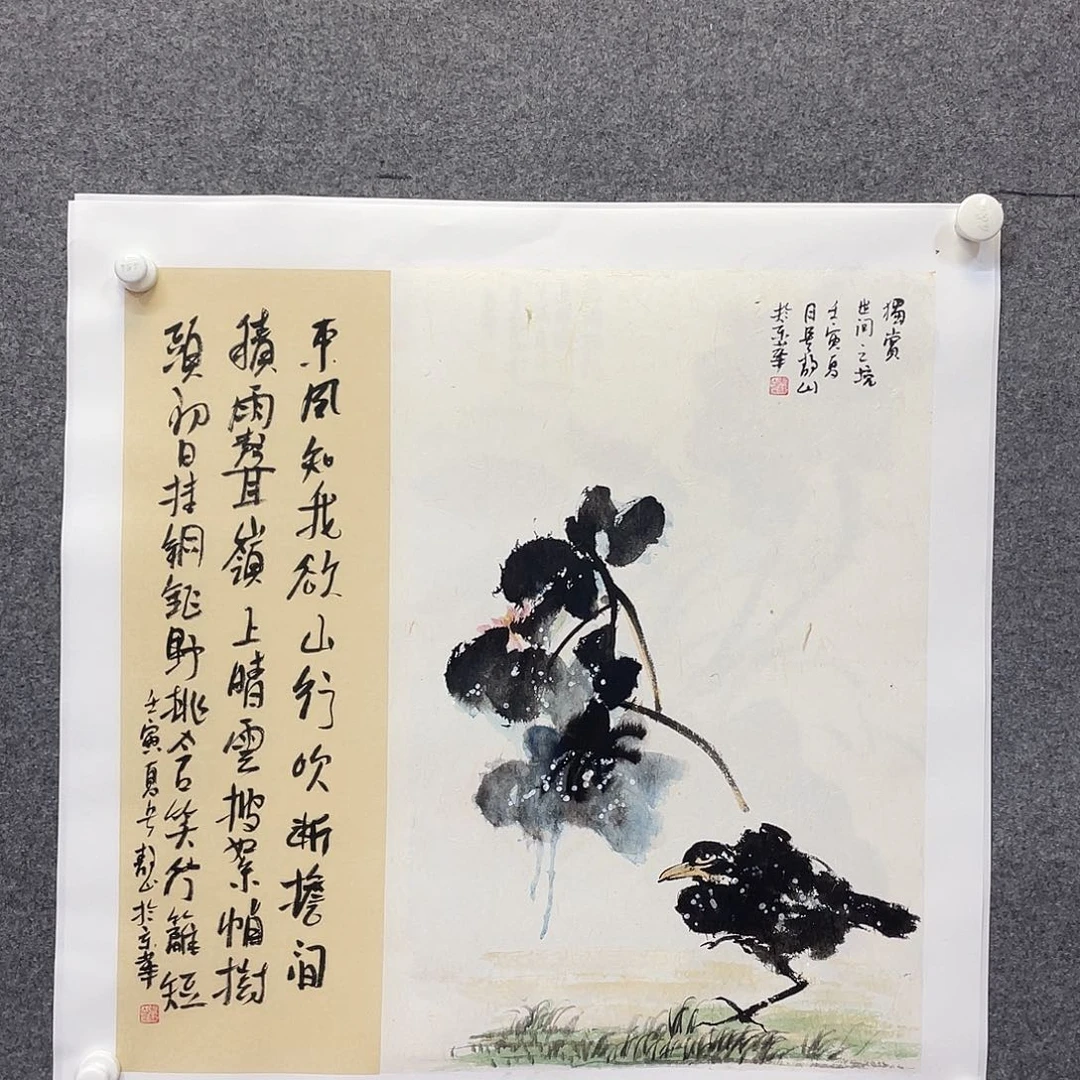 獨賞
世间之境
壬寅夏
月山
於京華
東風知我欲山行吹断檐间
積雨聲嶺上晴雲披絮帽樹
頭初日挂銅鉦野桃含笑竹籬短
壬寅夏山於京華